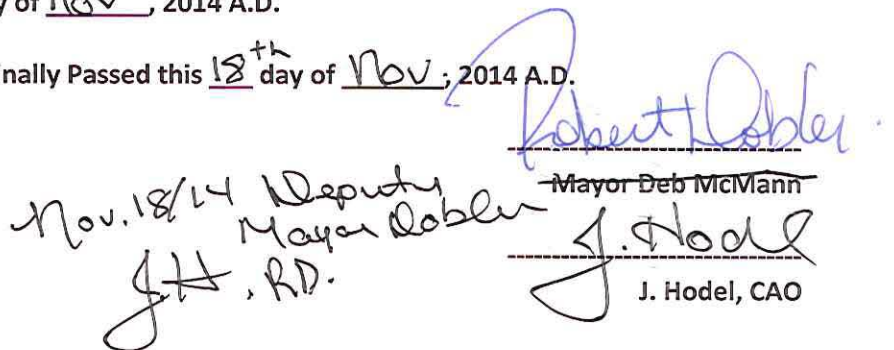 y of Nov, 2014 A.D.
nally Passed this 18th day of Nov, 2014 A.D.
Robert Dobler
Mayor Deb McMann
Nov. 18/14 Deputy
Mayor Dobler
J.H., R.D.
J. Hodel
J. Hodel, CAO